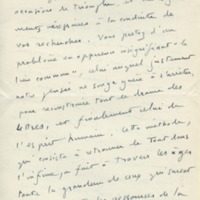 occasions de triomphe, et
ments réservés à la conduite de
vos recherches. Vous partez d'un
problème en apparence insignifiant - le
"lieu commun", celui auquel justement
notre pensée ne songe guère à s'arrêter,
pour reconstruire tout le drame des
Lettres, et finalement celui de
l'esprit humain. Cette méthode,
qui consiste à retrouver le tout dans
l'infime, a fait à travers les âges
toute la grandeur de ceux qui furent
les ressources de la